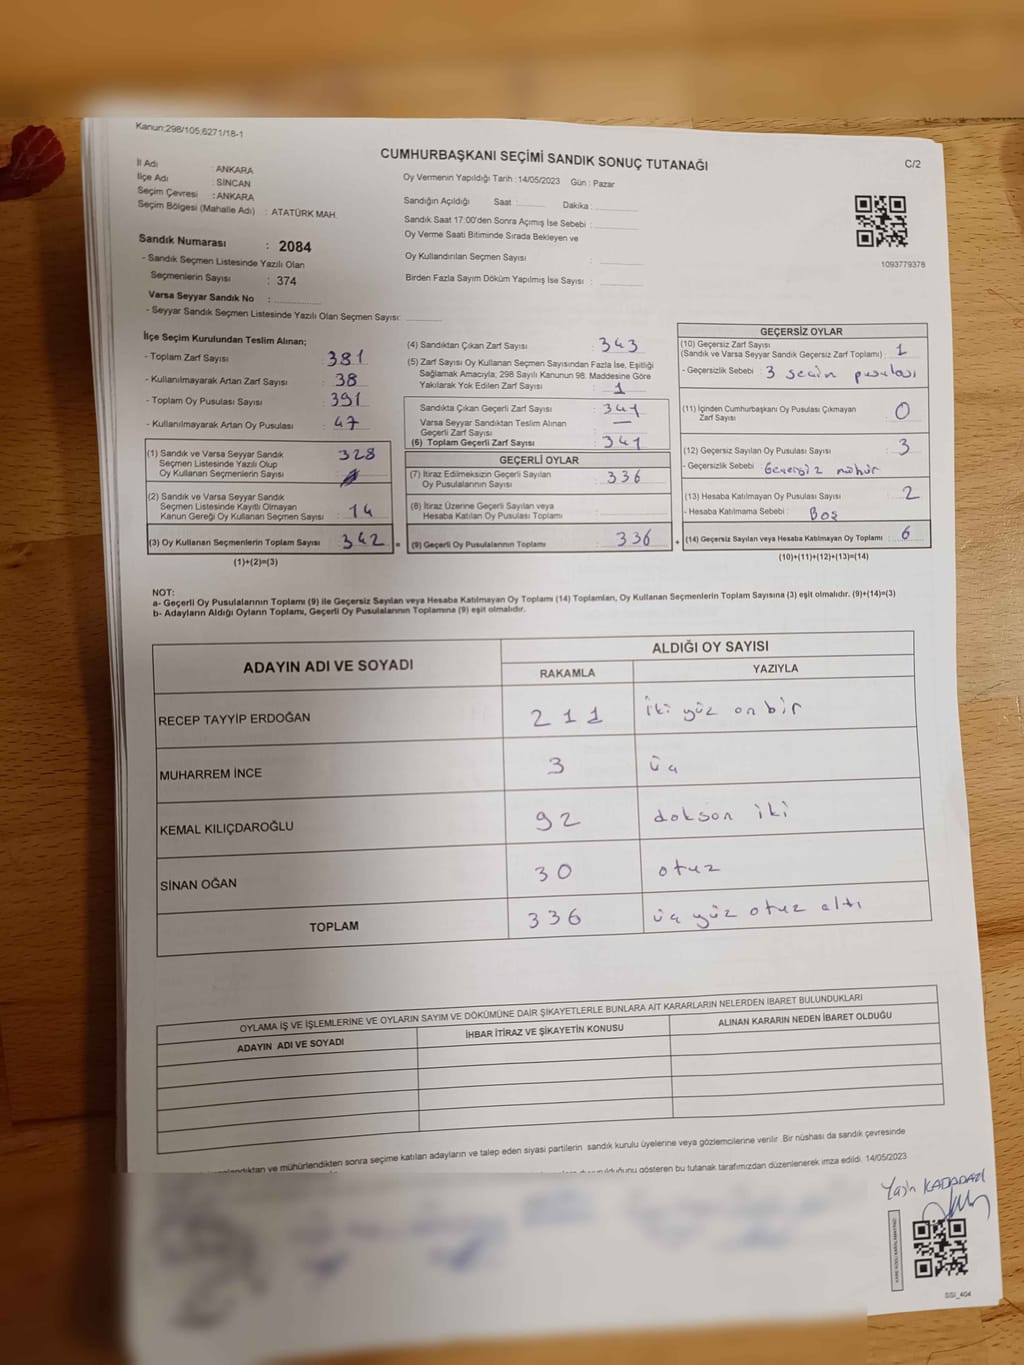 Kanun:298/105,6271/18-1
CUMHURBAŞKANI SEÇİMİ SANDIK SONUÇ TUTANAĞI
C/2
İl Adı : ANKARA
İlçe Adı : SİNCAN
Seçim Çevresi : ANKARA
Seçim Bölgesi (Mahalle Adı) : ATATÜRK MAH.
Oy Vermenin Yapıldığı Tarih : 14/05/2023 Gün : Pazar
Sandığın Açıldığı Saat : Dakika :
Sandık Saat 17:00'den Sonra Açımış İse Sebebi :
Oy Verme Saati Bitiminde Sırada Bekleyen ve
Oy Kullandırılan Seçmen Sayısı :
Birden Fazla Sayım Döküm Yapılmış İse Sayısı :
1093779378
Sandık Numarası : 2084
- Sandık Seçmen Listesinde Yazılı Olan
Seçmenlerin Sayısı : 374
Varsa Seyyar Sandık No :
- Seyyar Sandık Seçmen Listesinde Yazılı Olan Seçmen Sayısı:
İlçe Seçim Kurulundan Teslim Alınan;
- Toplam Zarf Sayısı : 381
- Kullanılmayarak Artan Zarf Sayısı : 38
- Toplam Oy Pusulası Sayısı : 391
- Kullanılmayarak Artan Oy Pusulası : 47
(1) Sandık ve Varsa Seyyar Sandık
Seçmen Listesinde Yazılı Olup
Oy Kullanan Seçmenlerin Sayısı : 328
(2) Sandık ve Varsa Seyyar Sandık
Seçmen Listesinde Kayıtlı Olmayan
Kanun Gereği Oy Kullanan Seçmen Sayısı : 14
(3) Oy Kullanan Seçmenlerin Toplam Sayısı : 342
(1)+(2)=(3)
(4) Sandıktan Çıkan Zarf Sayısı : 343
(5) Zarf Sayısı Oy Kullanan Seçmen Sayısından Fazla İse, Eşitliği
Sağlamak Amacıyla, 298 Sayılı Kanunun 98. Maddesine Göre
Yakılarak Yok Edilen Zarf Sayısı : 1
Sandıkta Çıkan Geçerli Zarf Sayısı : 341
Varsa Seyyar Sandıktan Teslim Alınan
Geçerli Zarf Sayısı : —
(6) Toplam Geçerli Zarf Sayısı : 341
GEÇERLİ OYLAR
(7) İtiraz Edilmeksizin Geçerli Sayılan
Oy Pusulalarının Sayısı : 336
(8) İtiraz Üzerine Geçerli Sayılan veya
Hesaba Katılan Oy Pusulası Toplamı :
= (9) Geçerli Oy Pusulalarının Toplamı : 336 +
GEÇERSİZ OYLAR
(10) Geçersiz Zarf Sayısı
(Sandık ve Varsa Seyyar Sandık Geçersiz Zarf Toplamı) : 1
- Geçersizlik Sebebi : 3 seçim pusulası
(11) İçinden Cumhurbaşkanı Oy Pusulası Çıkmayan
Zarf Sayısı : 0
(12) Geçersiz Sayılan Oy Pusulası Sayısı : 3
- Geçersizlik Sebebi : Geçersiz mühür
(13) Hesaba Katılmayan Oy Pusulası Sayısı : 2
- Hesaba Katılmama Sebebi : Boş
(14) Geçersiz Sayılan veya Hesaba Katılmayan Oy Toplamı : 6
(10)+(11)+(12)+(13)=(14)
NOT:
a- Geçerli Oy Pusulalarının Toplamı (9) ile Geçersiz Sayılan veya Hesaba Katılmayan Oy Toplamı (14) Toplamları, Oy Kullanan Seçmenlerin Toplam Sayısına (3) eşit olmalıdır. (9)+(14)=(3)
b- Adayların Aldığı Oyların Toplamı, Geçerli Oy Pusulalarının Toplamına (9) eşit olmalıdır.
ADAYIN ADI VE SOYADI
ALDIĞI OY SAYISI
RAKAMLA YAZIYLA
RECEP TAYYİP ERDOĞAN 211 iki yüz on bir
MUHARREM İNCE 3 üç
KEMAL KILIÇDAROĞLU 92 doksan iki
SİNAN OĞAN 30 otuz
TOPLAM 336 üç yüz otuz altı
OYLAMA İŞ VE İŞLEMLERİNE VE OYLARIN SAYIM VE DÖKÜMÜNE DAİR ŞİKAYETLERLE BUNLARA AİT KARARLARIN NELERDEN İBARET BULUNDUKLARI
ADAYIN ADI VE SOYADI İHBAR İTİRAZ VE ŞİKAYETİN KONUSU ALINAN KARARIN NEDEN İBARET OLDUĞU
mühürlendikten sonra seçime katılan adayların ve talep eden siyasi partilerin sandık kurulu üyelerine veya gözlemcilerine verilir. Bir nüshası da sandık çevresinde
gösteren bu tutanak tarafımızdan düzenlenerek imza edildi. 14/05/2023
SSI_404